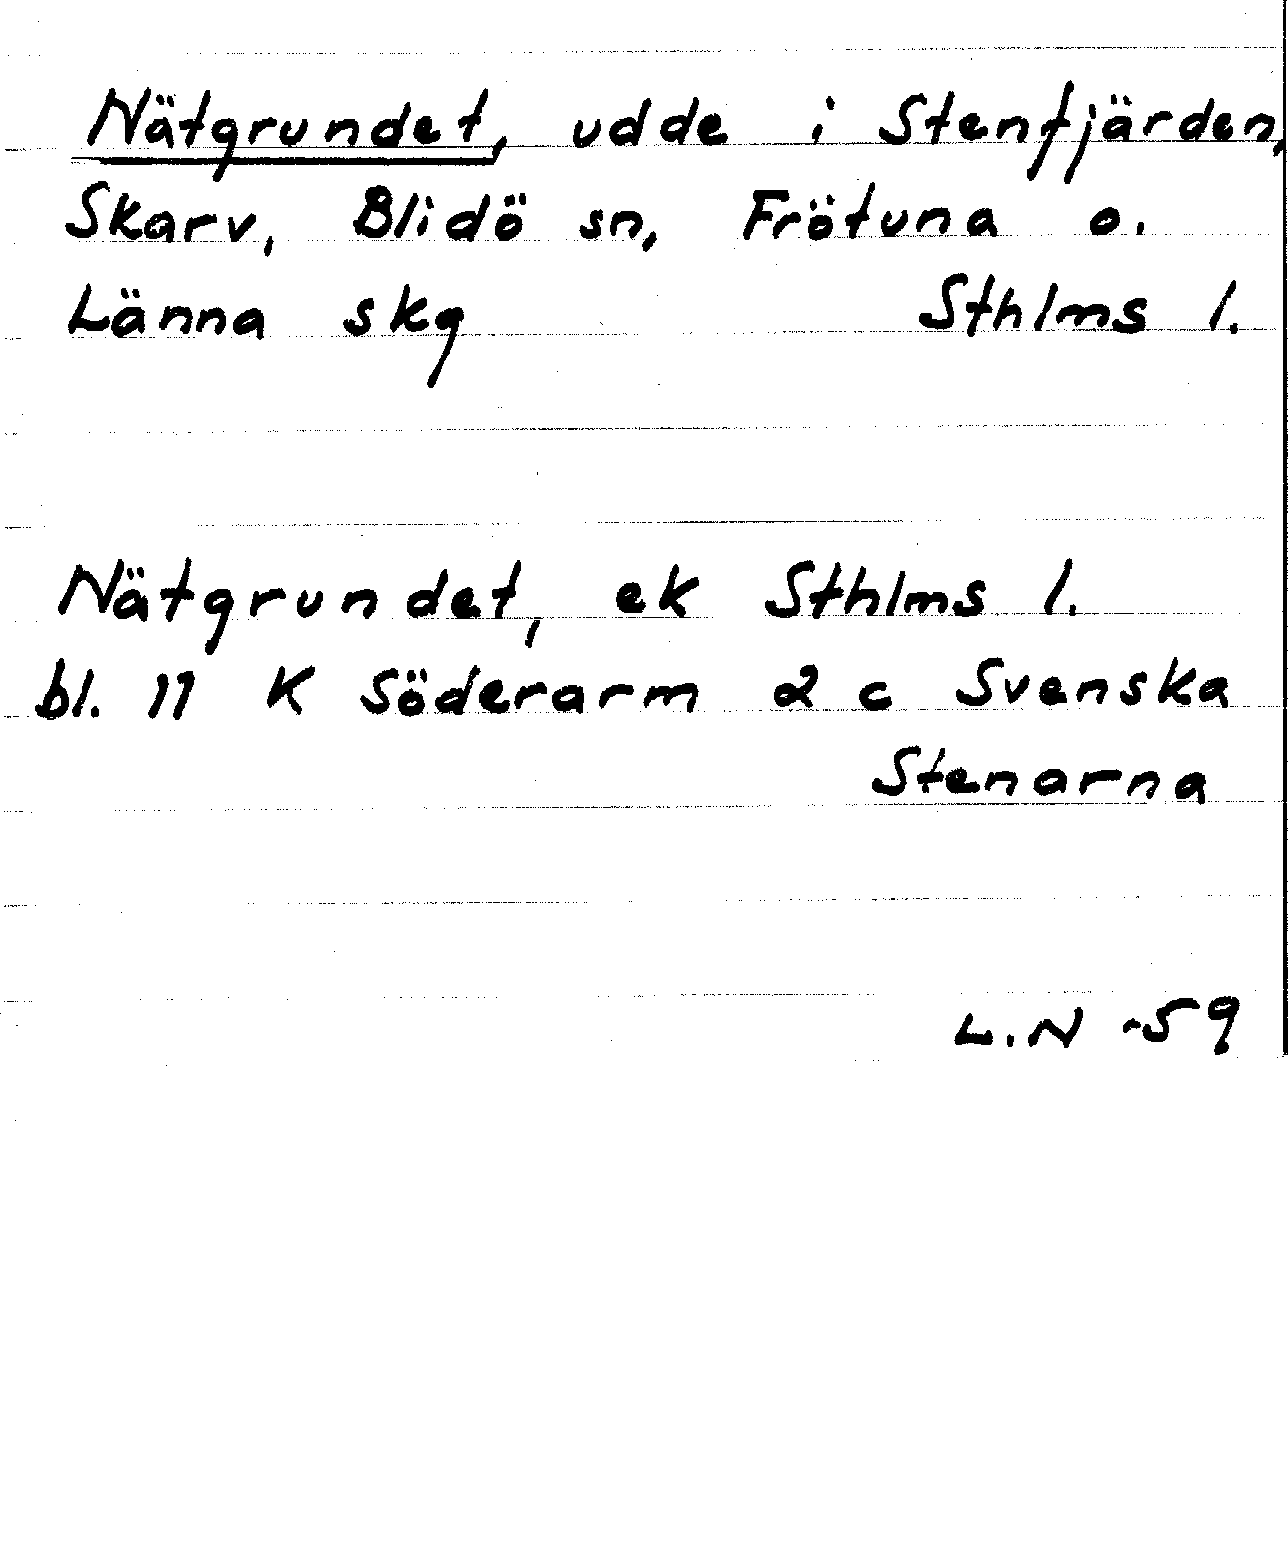 Nätgrundet, udde i Stenfjärden,
Skarv, Blidö sn, Frötuna o.
Länna skg Sthlms l.
Nätgrundet, ek Sthlms l.
bl. 11 K Söderarm d c Svenska
Stenarna
L.N -59